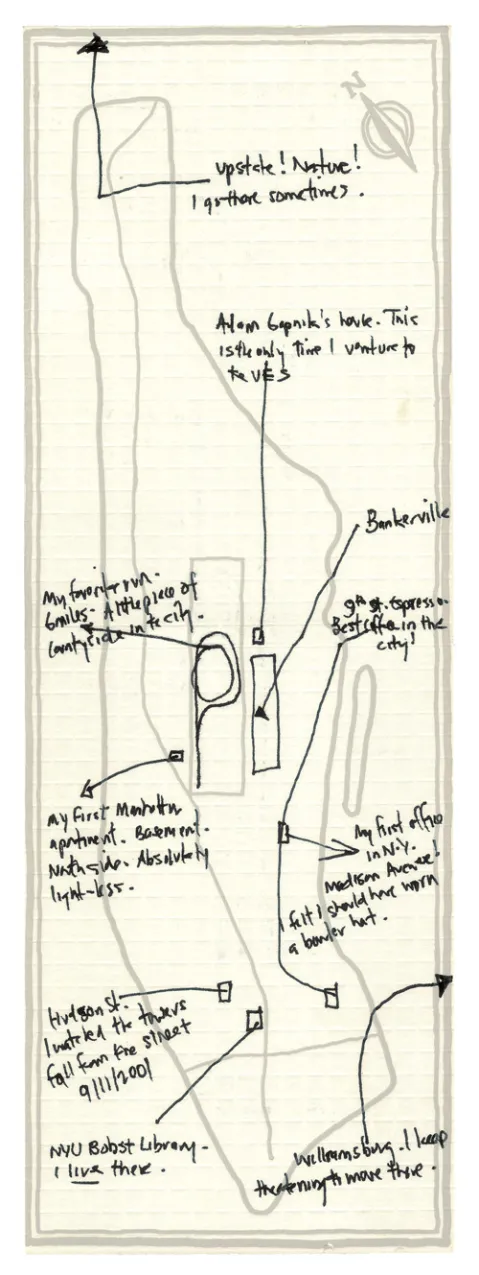 N
upstate! Nature!
I go there sometimes.
Adam Gopnik's house. This
is the only time I venture to
the UES
Bankerville
My favorite run.
6 miles. A little piece of
countryside in the city.
9th St. Espresso.
Best coffee in the
city!
my first Manhattan
apartment. Basement.
North side. Absolutely
light-less.
My first office
in N.Y.
Madison Avenue!
I felt I should have worn
a bowler hat.
Hudson St.
I watched the towers
fall from the street
9/11/2001
NYU Bobst Library.
I live there.
Williamsburg. I keep
threatening to move there.